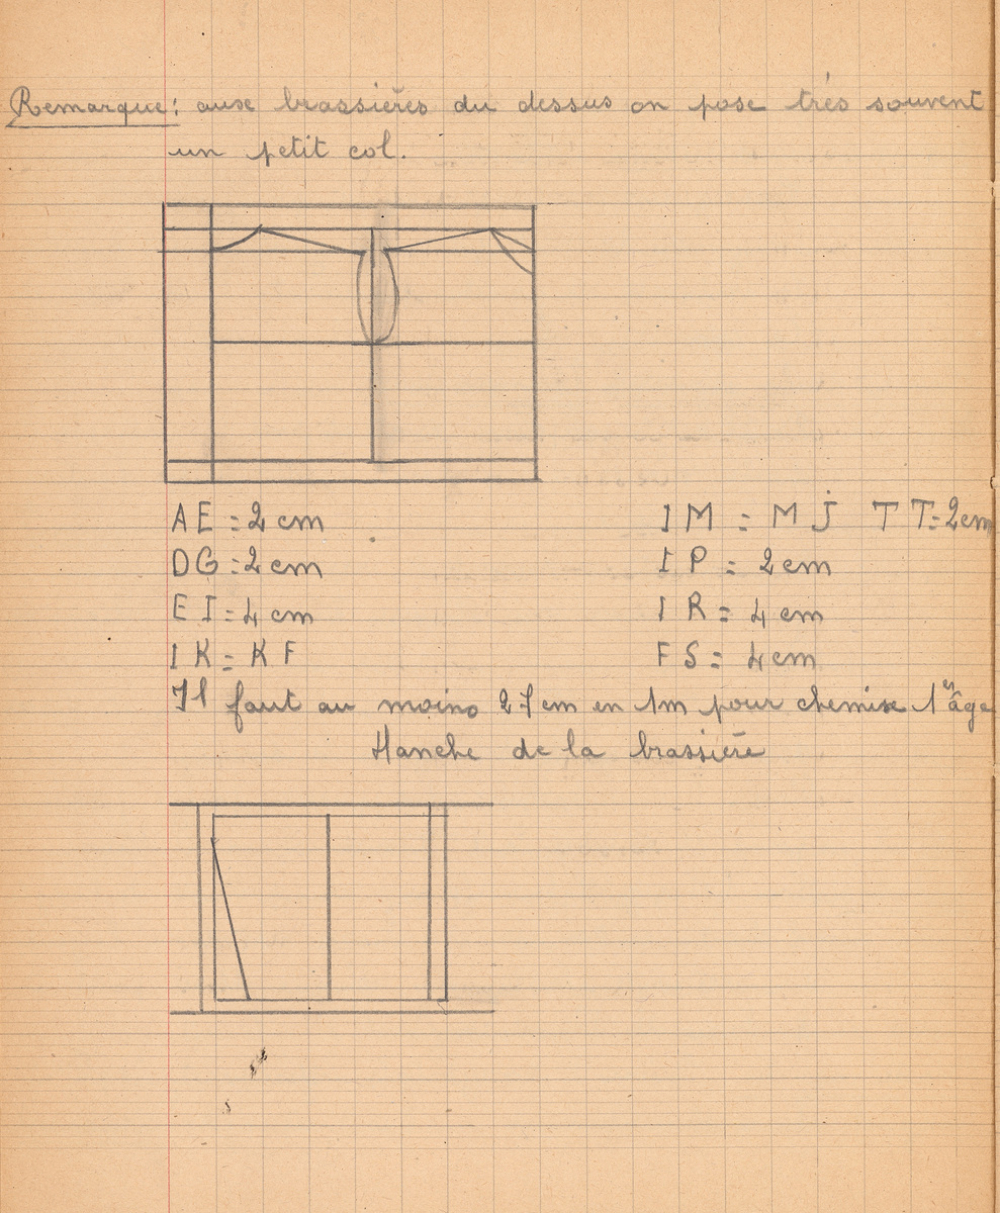 Remarque: aux brassières du dessus on pose très souvent
un petit col.
AE = 2 cm
DG = 2 cm
EI = 4 cm
IK = KF
IM = MJ TT = 2 cm
IP = 2 cm
IR = 4 cm
FS = 4 cm
Il faut au moins 27 cm en 1m pour chemise 1er âge
Manche de la brassière